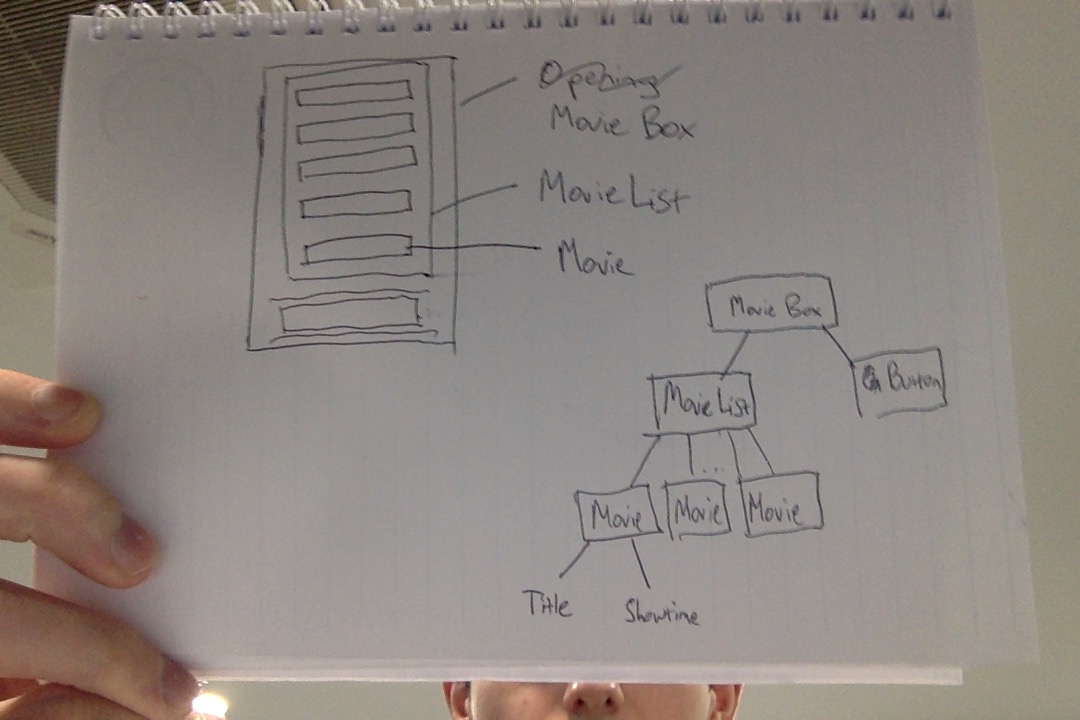 Opening
Movie Box
Movie List
Movie
Movie Box
Button
Movie List
...
Movie
Movie
Movie
Title
Showtime